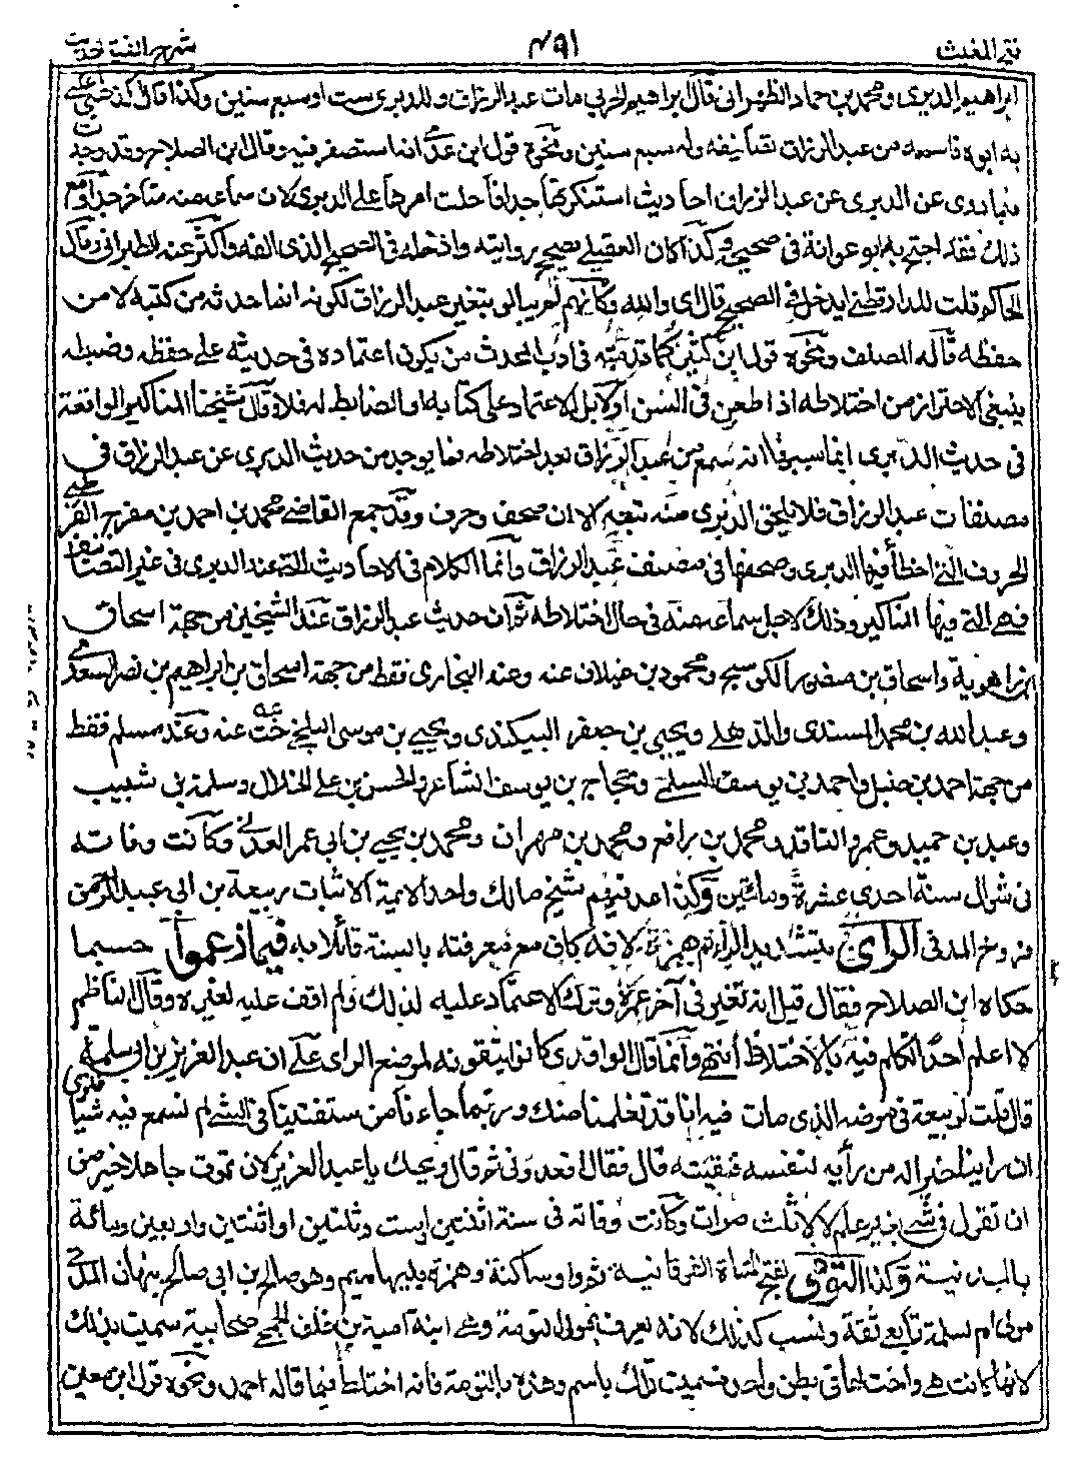 فتح المغيث ٤٩١ شرح الفية الحديث
ابراهيم الدبرى ومحمد بن حماد الظهرانى قال ابراهيم الحربى مات عبد الرزاق وللدبرى ست او سبع سنين وكذا قال الذهبى اعتنى
به ابوه فاسمعه من عبد الرزاق تصانيفه وله سبع سنين ونحوه قول ابن عدى انه استصغر فيه وقال ابن الصلاح وقد وجدت
فيما روى عن الدبرى عن عبد الرزاق احاديث استنكرتها جدا فاحلت امرها على الدبرى لان سماعه منه متأخر جدا ومع
ذلك فقد احتج به ابو عوانة فى صحيحه وكذا كان العقيلى يصحح روايته وادخله فى الصحيح الذى الفه واكثر عنه الطبرانى وقال
الحاكم قلت للدارقطنى ايدخل فى الصحيح قال اى والله وكأنهم لم يبالوا بتغير عبد الرزاق لكونه انما حدثه من كتبه لا من
حفظه قاله المصنف ونحوه قول ابن كثير كما قدمته فى ادب المحدث من يكون اعتماده فى حديثه على حفظه وضبطه
ينبغى الاحتراز من اختلاطه اذا طعن فى السن او لا بل الاعتماد على كتابه او الضابط له فلا وقال شيخنا المناكير الواقعة
فى حديث الدبرى انما سببها انه سمع من عبد الرزاق بعد اختلاطه فما يوجد من حديث الدبرى عن عبد الرزاق فى
مصنفات عبد الرزاق فلا يلحق الدبرى منه تبعة الا ان صحف وحرف وقد جمع القاضى محمد بن احمد بن مفرج القرطبى
الحروف التى اخطأ فيها الدبرى وصحفها فى مصنف عبد الرزاق وانما الكلام فى الاحاديث التى عند الدبرى فى غير التصانيف
فهى التى فيها المناكير وذلك لاجل سماعه منه فى حال اختلاطه ثم ان حديث عبد الرزاق عند الشيخين من جهة اسحاق
بن راهوية واسحاق بن منصور الكوسج ومحمود بن غيلان عنه وعند البخارى فقط من جهة اسحاق بن ابراهيم بن نصر السعدى
وعبد الله بن محمد المسندى والذهلى ويحيى بن جعفر البيكندى ويحيى بن موسى البلخى خت عنه وعند مسلم فقط
من جهة احمد بن حنبل واحمد بن يوسف السلمى وحجاج بن يوسف الشاعر والحسن بن على الخلال وسلمة بن شبيب
وعبد بن حميد وعمرو الناقد ومحمد بن رافع ومحمد بن مهران ومحمد بن يحيى بن ابى عمر العدنى وكانت وفاته
فى شوال سنة احدى عشرة ومائتين وكذا عد فيهم شيخ مالك واحد الايمة الاثبات ربيعة بن ابى عبد الرحمن
فروخ المدنى الراى بتشديد الراء ثم همزة لانه كان مع معرفته بالسنة قائلا به فيما زعموا حسبما
حكاه ابن الصلاح فقال قيل انه تغير فى آخر عمره وترك الاعتماد عليه لذلك ولم اقف عليه لغيره وقال الناظم
لا اعلم احدا تكلم فيه بالاختلاط انتهى وانما قال الواقدى كانوا يتقونه لموضع الراى على ان عبد العزيز بن ابى سلمة
قال قلت لربيعة فى مرضه الذى مات فيه انا قد تعلمنا منك وربما جاءنا من يستفتينا فى الشئ لم نسمع فيه شيئا فنرى
ان رأينا خير له من رأيه لنفسه فنفتيه قال فقال اقعدونى ثم قال ويحك يا عبد العزيز لان تموت جاهلا خير من
ان تقول فى شئ بغير علم لا لا ثلث مرات وكانت وفاته فى سنة اثنتين او ست وثلثين او اثنتين واربعين ومائة
بالمدينة وكذا التوئمى بفتح المثناة الفوقانية ثم واو ساكنة وهمزة يليها ميم وهو صالح بن ابى صالح نبهان المدنى
مولى ام سلمة تابعى ثقة ونسب كذلك لانه يعرف بمولى التومة وهى ابنة امية بن خلف الجمحى صحابية سميت بذلك
لانها كانت هى واخت لها فى بطن واحد فسميت تلك باسم وهذه بالتومة فانه اختلط فيما قاله احمد ونحوه قول ابن معين